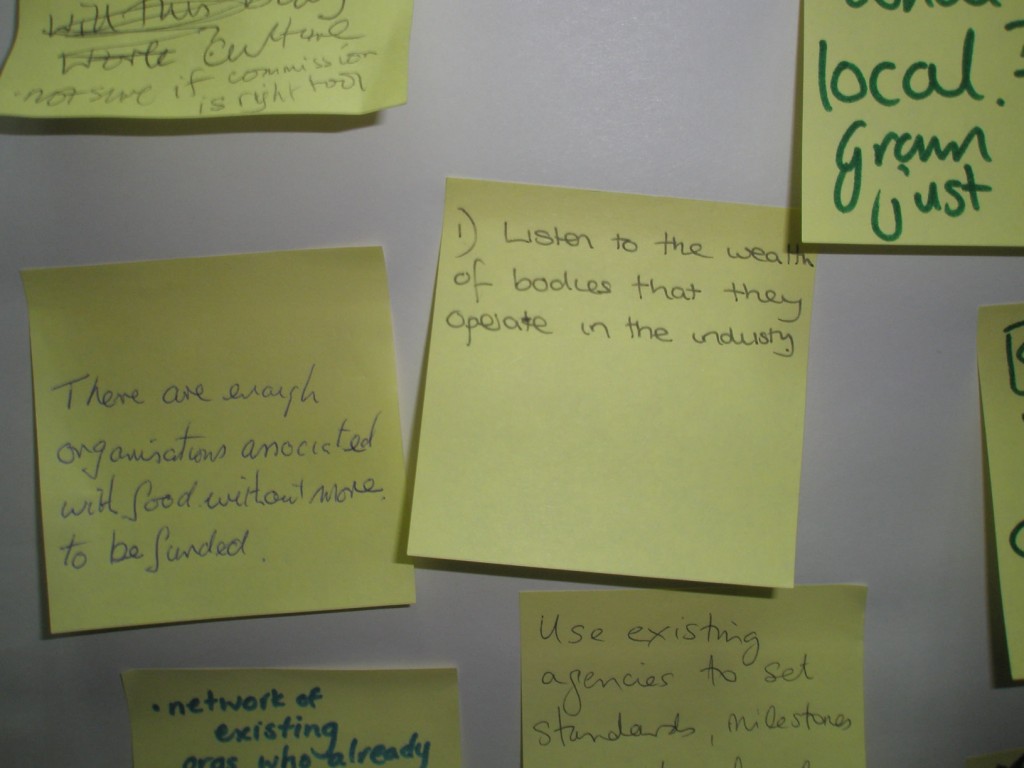 will this
work culture
not sure if commission
is right tool
local.
Grown
Just
1) Listen to the wealth
of bodies that they
operate in the industry
There are enough
organisations associated
with food without more
to be funded.
Use existing
agencies to set
standards, milestones
• network of
existing
orgs who already